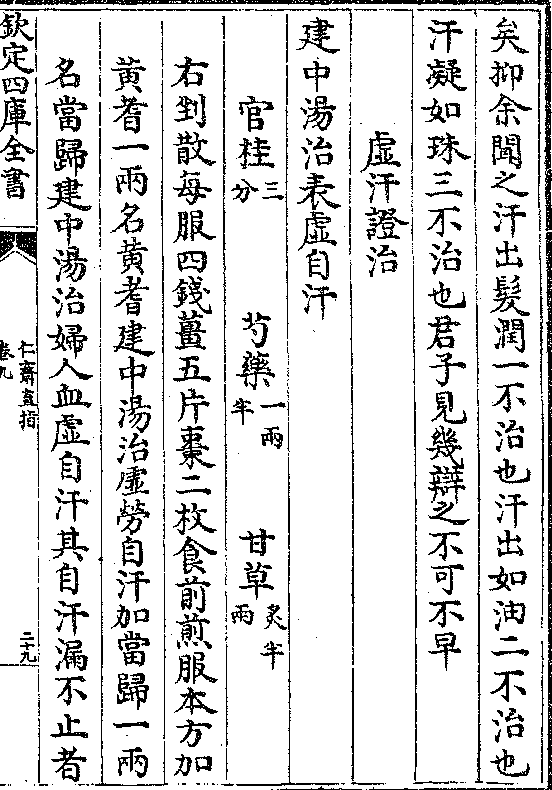 矣抑余聞之汗出髮潤一不治也汗出如油二不治也
汗凝如珠三不治也君子見幾辯之不可不早
虛汗證治
建中湯治表虛自汗
官桂三分 芍藥一兩半 甘草炙半兩
右剉散每服四錢薑五片棗二枚食前煎服本方加
黄耆一兩名黄耆建中湯治虛勞自汗加當歸一兩
名當歸建中湯治婦人血虛自汗其自汗漏不止者
欽定四庫全書
仁齋直指
卷九
二十九